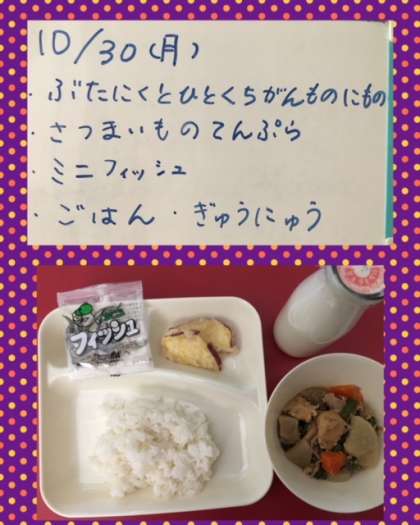 10/30(月)
・ぶたにくとひとくちがんものにもの
・さつまいものてんぷら
・ミニフィッシュ
・ごはん・ぎゅうにゅう
フィッシュ